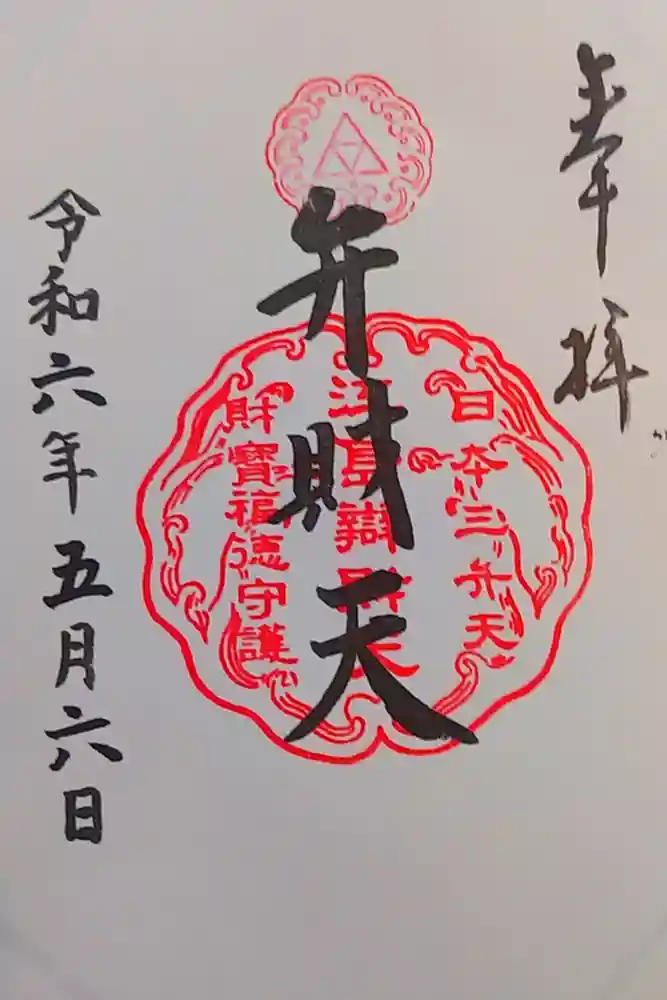 奉拝
日本三弁天
江島辯財天
弁財天
財寶福徳守護
令和六年五月六日